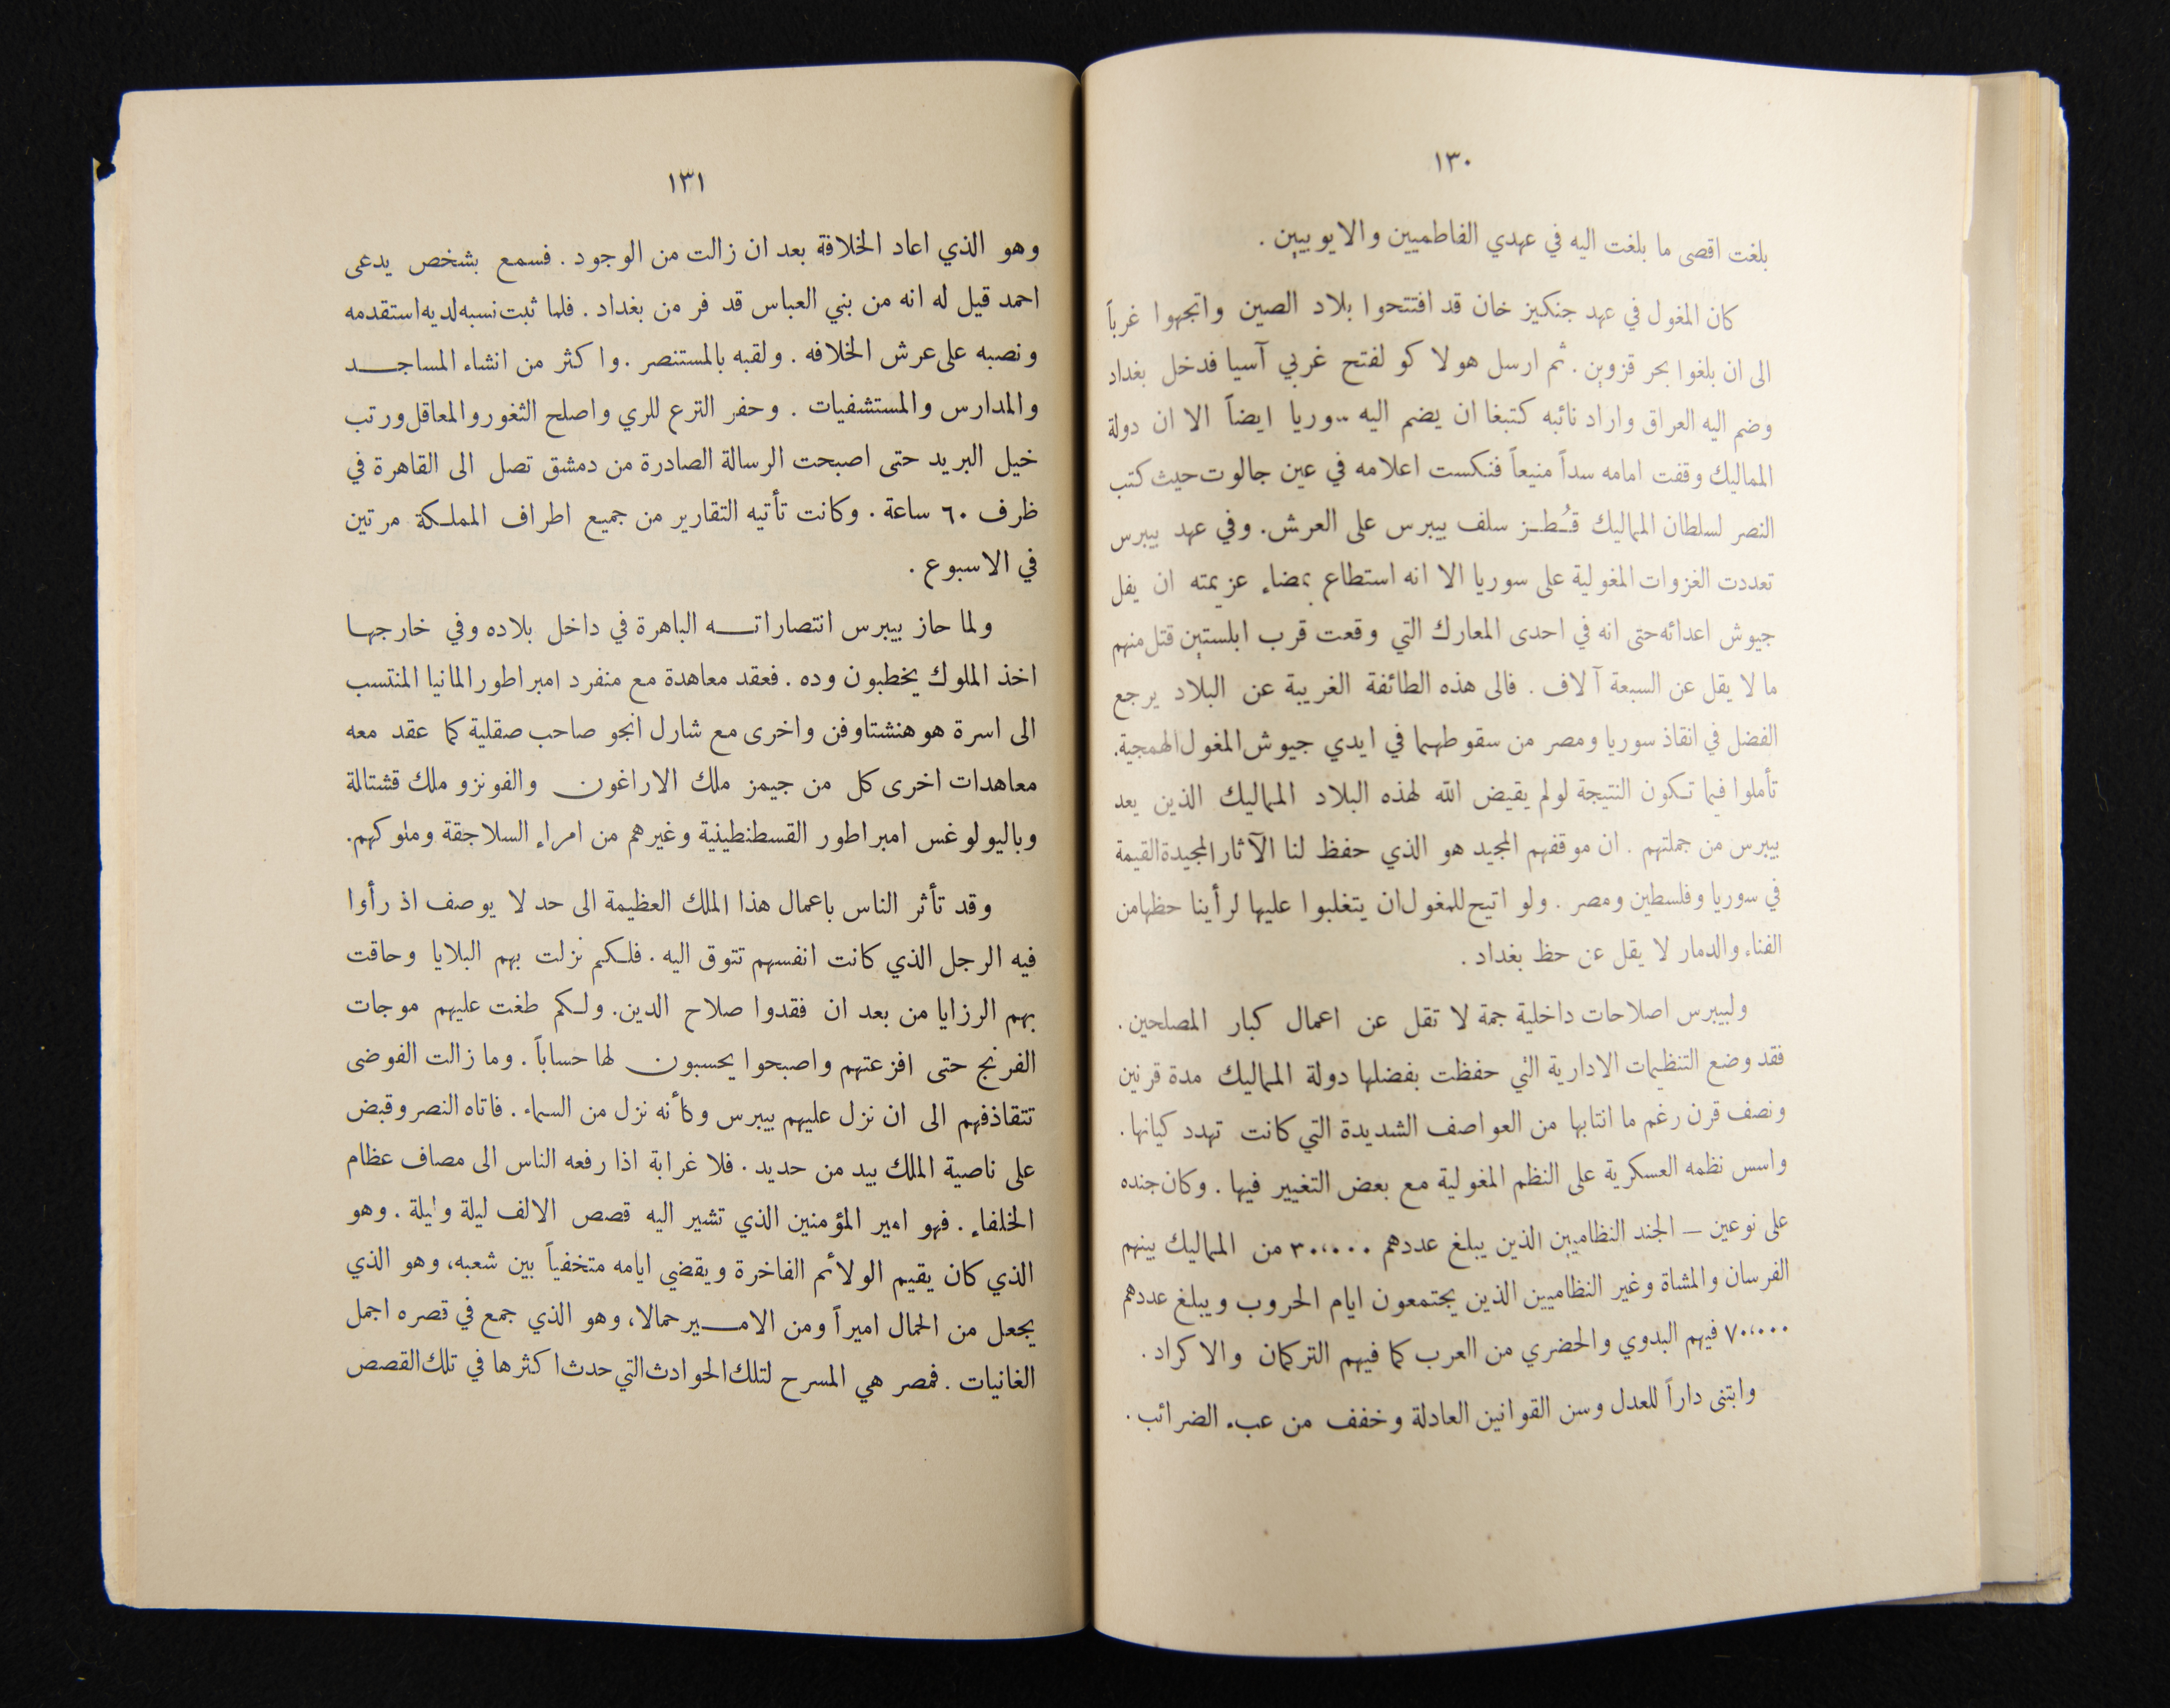 ١٣٠
بلغت اقصى ما بلغت اليه في عهدي الفاطميين والايوبيين .
كان المغول في عهد جنكيز خان قد افتتحوا بلاد الصين واتجهوا غرباً
الى ان بلغوا بحر قزوين . ثم ارسل هولاكو لفتح غربي آسيا فدخل بغداد
وضم اليه العراق واراد نائبه كتبغا ان يضم اليه سوريا ايضاً الا ان دولة
المماليك وقفت امامه سداً منيعاً فنكست اعلامه في عين جالوت حيث كتب
النصر لسلطان المماليك قُطز سلف بيبرس على العرش. وفي عهد بيبرس
تعددت الغزوات المغولية على سوريا الا انه استطاع بمضاء عزيمته ان يفل
جيوش اعدائه حتى انه في احدى المعارك التي وقعت قرب ابلستين قتل منهم
ما لا يقل عن السبعة آلاف . فالى هذه الطائفة الغريبة عن البلاد يرجع
الفضل في انقاذ سوريا ومصر من سقوطهما في ايدي جيوش المغول الهمجية.
تأملوا فيما تكون النتيجة لو لم يقيض الله لهذه البلاد المماليك الذين يعد
بيبرس من جملتهم . ان موقفهم المجيد هو الذي حفظ لنا الآثار المجيدة القيمة
في سوريا وفلسطين ومصر . ولو اتيح للمغول ان يتغلبوا عليها لرأينا حظها من
الفناء والدمار لا يقل عن حظ بغداد .
ولبيبرس اصلاحات داخلية جمة لا تقل عن اعمال كبار المصلحين .
فقد وضع التنظيمات الادارية التي حفظت بفضلها دولة المماليك مدة قرنين
ونصف قرن رغم ما انتابها من العواصف الشديدة التي كانت تهدد كيانها .
واسس نظمه العسكرية على النظم المغولية مع بعض التغيير فيها . وكان جنده
على نوعين – الجند النظاميين الذين يبلغ عددهم ٣٠،٠٠٠ من المماليك بينهم
الفرسان والمشاة وغير النظاميين الذين يجتمعون ايام الحروب ويبلغ عددهم
٧٠،٠٠٠ فيهم البدوي والحضري من العرب كما فيهم التركمان والاكراد .
وابتنى داراً للعدل وسن القوانين العادلة وخفف من عبء الضرائب .
١٣١
وهو الذي اعاد الخلافة بعد ان زالت من الوجود . فسمع بشخص يدعى
احمد قيل له انه من بني العباس قد فر من بغداد . فلما ثبت نسبه لديه استقدمه
ونصبه على عرش الخلافه . ولقبه بالمستنصر . واكثر من انشاء المساجد
والمدارس والمستشفيات . وحفر الترع للري واصلح الثغور والمعاقل ورتب
خيل البريد حتى اصبحت الرسالة الصادرة من دمشق تصل الى القاهرة في
ظرف ٦٠ ساعة . وكانت تأتيه التقارير من جميع اطراف المملكة مرتين
في الاسبوع .
ولما حاز بيبرس انتصاراته الباهرة في داخل بلاده وفي خارجها
اخذ الملوك يخطبون وده . فعقد معاهدة مع منفرد امبراطور المانيا المنتسب
الى اسرة هوهنشتاوفن واخرى مع شارل انجو صاحب صقلية كما عقد معه
معاهدات اخرى كل من جيمز ملك الاراغون والفونزو ملك قشتالة
وباليولوغس امبراطور القسطنطينية وغيرهم من امراء السلاجقة وملوكهم.
وقد تأثر الناس باعمال هذا الملك العظيمة الى حد لا يوصف اذ رأوا
فيه الرجل الذي كانت انفسهم تتوق اليه . فلكم نزلت بهم البلايا وحاقت
بهم الرزايا من بعد ان فقدوا صلاح الدين. ولكم طغت عليهم موجات
الفرنج حتى افزعتهم واصبحوا يحسبون لها حساباً . وما زالت الفوضى
تتقاذفهم الى ان نزل عليهم بيبرس وكأنه نزل من السماء . فاتاه النصر وقبض
على ناصية الملك بيد من حديد . فلا غرابة اذا رفعه الناس الى مصاف عظام
الخلفاء . فهو امير المؤمنين الذي تشير اليه قصص الالف ليلة وليلة . وهو
الذي كان يقيم الولائم الفاخرة ويقضي ايامه متخفياً بين شعبه، وهو الذي
يجعل من الحمال اميراً ومن الامير حمالا، وهو الذي جمع في قصره اجمل
الغانيات . فمصر هي المسرح لتلك الحوادث التي حدث اكثرها في تلك القصص